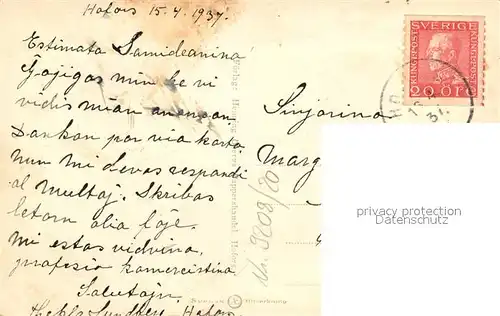 Hofors 15.4.1937.
Estimata Samideanino
Ĝojigas min ke vi
vidis mian anoncon.
Dankon por via karto
nun mi devas respondi
al multaj. Skribas
letorn alia foje.
Mi estas vidvino,
profesio komercistino.
Salutojn.
Thekla Lundberg – Hofors
Sinjorino
Marg
SVERIGE
20 ÖRE
37.
privacy protection
Datenschutz